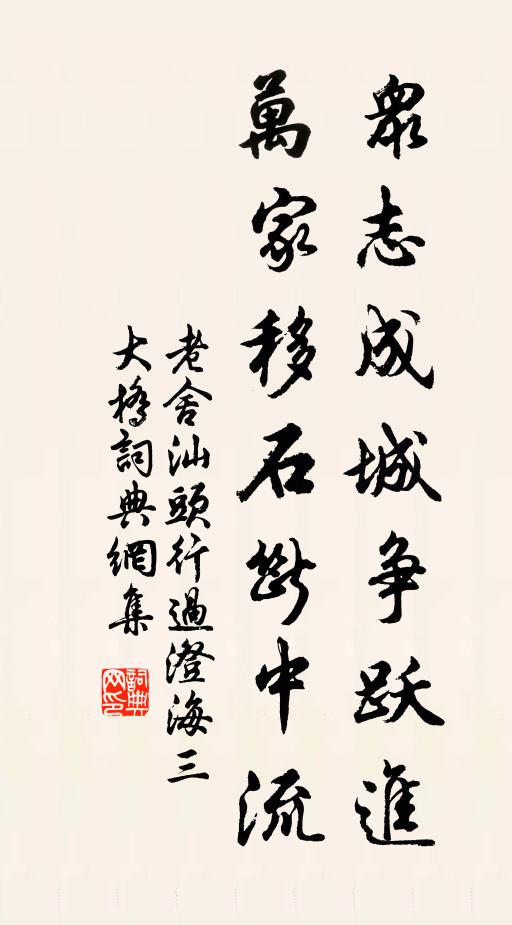 眾志成城争跃進
萬家移石斷中流
老舍汕頭行過澄海三
大橋詞典網集
詞典网印